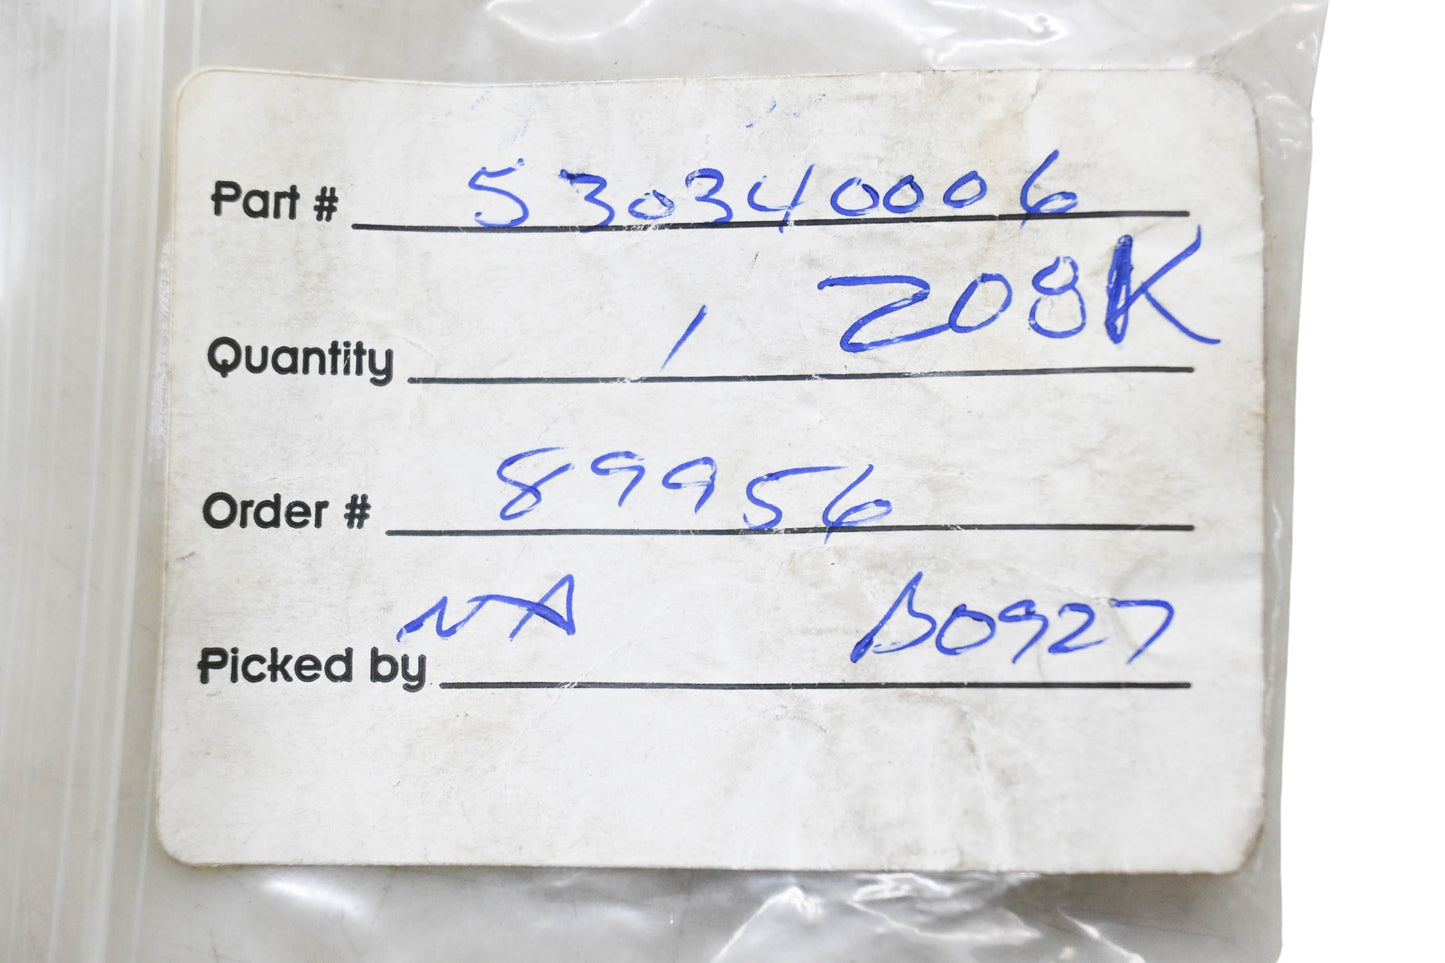 Part # 530340006
Quantity 1 208K
Order # 89956
Picked by NA B0927